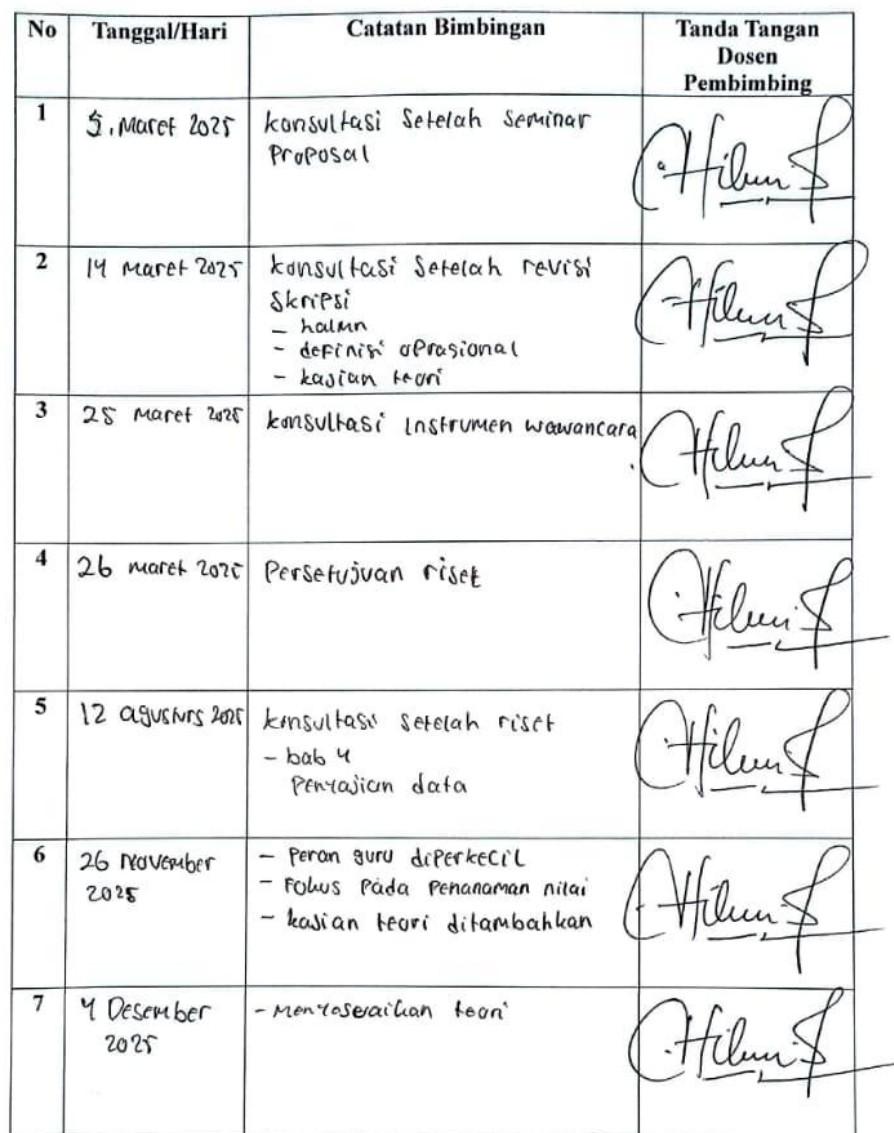 No Tanggal/Hari Catatan Bimbingan Tanda Tangan
Dosen
Pembimbing
1 5. Maret 2025 konsultasi Setelah Seminar
Proposal
2 14 Maret 2025 konsultasi Setelah revisi
Skripsi
- halmn
- definisi oprasional
- kajian teori
3 25 Maret 2025 konsultasi Instrumen wawancara
4 26 maret 2025 Persetujuan riset
5 12 agusturs 2025 konsultasi setelah riset
- bab 4
Penyajian data
6 26 november - Peran guru diperkecil
2025 - Fokus pada Penanaman nilai
- kajian teori ditambahkan
7 4 Desember - teori
2025